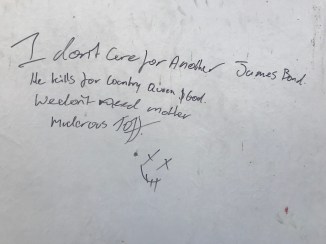 I don't Care for Another James Bond.
He kills for Country Queen & God.
We don't need another
Muderous Toff.